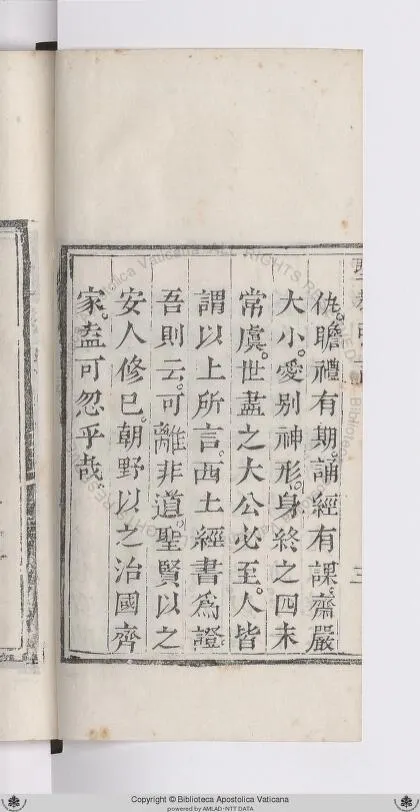 仇。瞻禮有期。誦經有課。齋嚴
大小。愛別神形。身終之四末
常虞。世盡之大公必至。人皆
謂以上所言。西土經書爲證。
吾則云。可離非道。聖賢以之
安人修已。朝野以之治國齊
家。盍可忽乎哉。
Copyright © Biblioteca Apostolica Vaticana
powered by AMLAD-NTT DATA